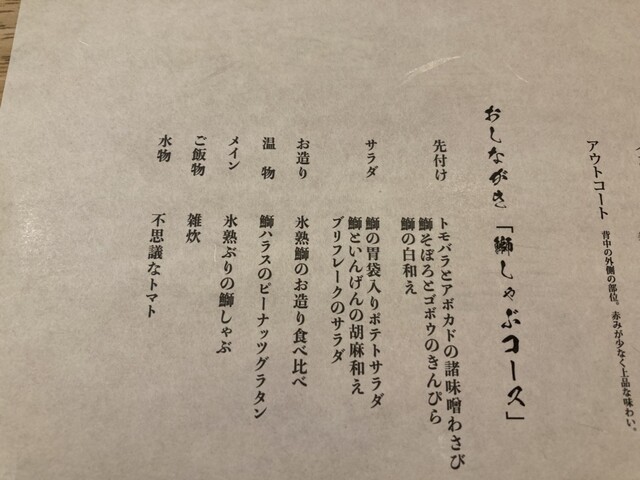 アウトコート 背中の外側の部位。赤みが少なく上品な味わい。
おしながき「鰤しゃぶコース」
先付け トモバラとアボカドの諸味噌わさび
鰤そぼろとゴボウのきんぴら
鰤の白和え
サラダ 鰤の胃袋入りポテトサラダ
鰤といんげんの胡麻和え
ブリフレークのサラダ
お造り 氷熟鰤のお造り食べ比べ
温物 鰤ハラスのピーナッツグラタン
メイン 氷熟ぶりの鰤しゃぶ
ご飯物 雑炊
水物 不思議なトマト